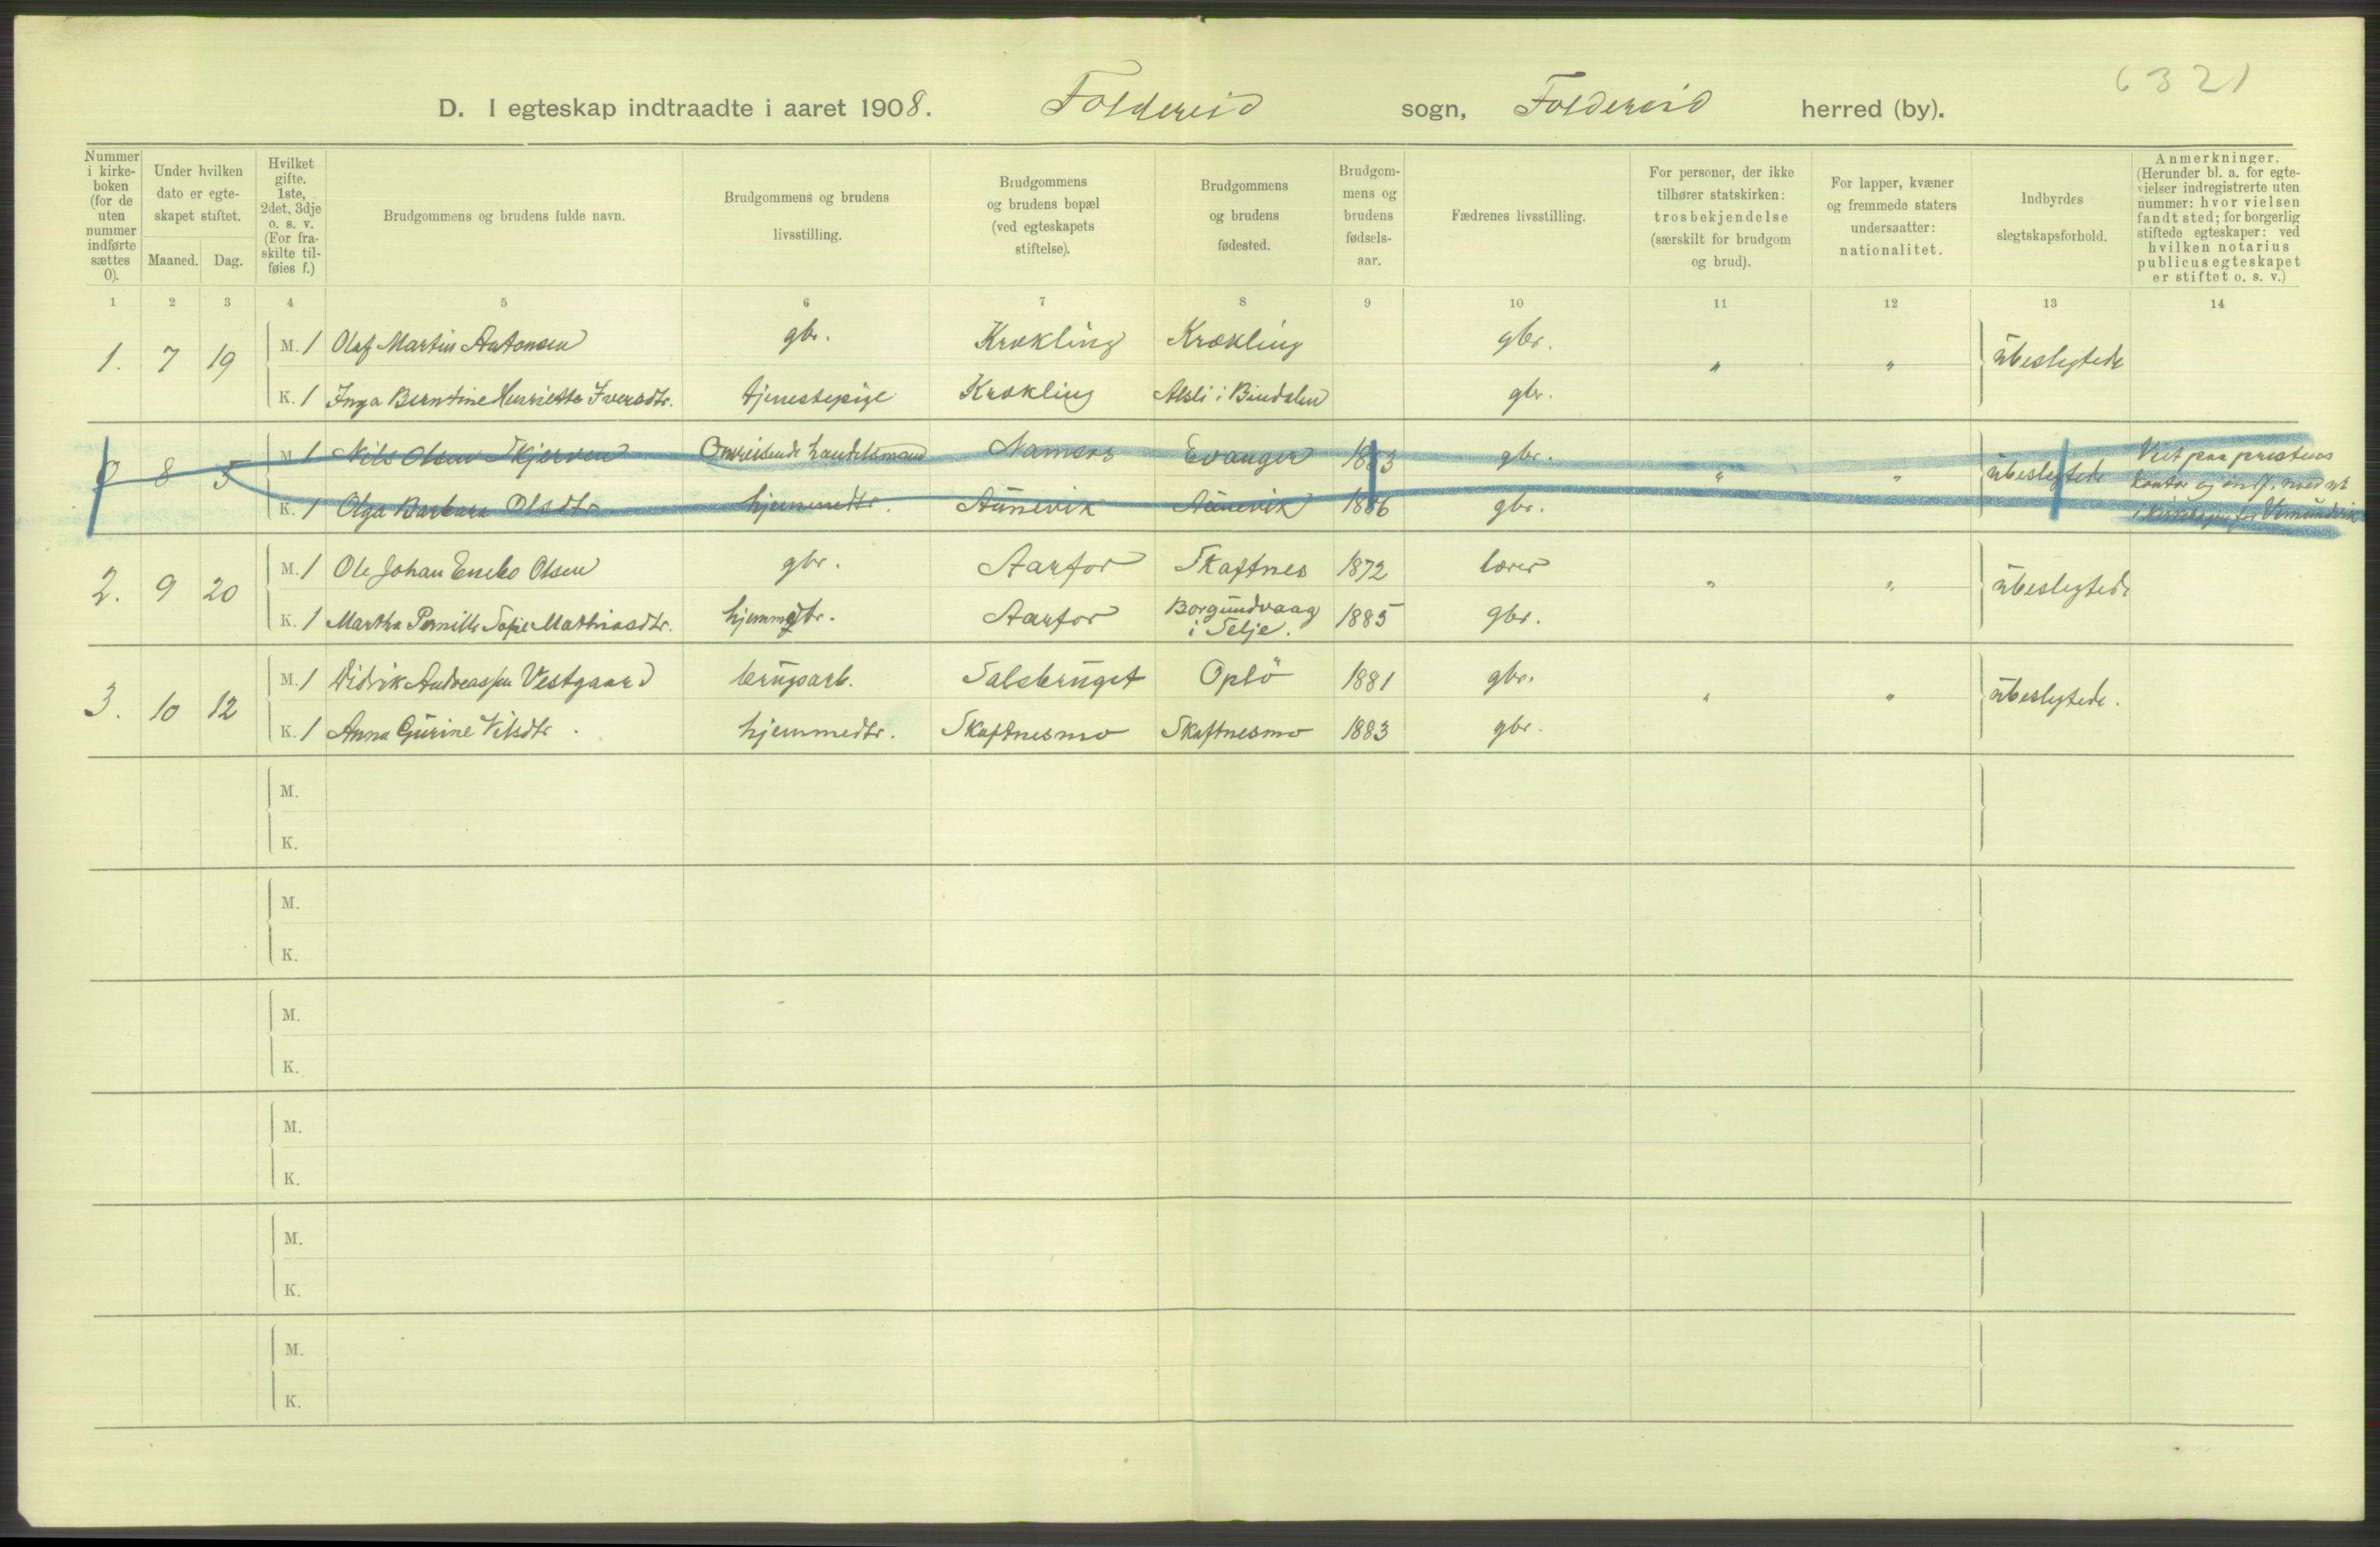 6321
D. I egteskap indtraadte i aaret 1908. Foldereid sogn, Foldereid herred (by).
Nummer i kirke-boken (for de uten nummer indførte sættes 0).
Under hvilken dato er egte-skapet stiftet.
Maaned. Dag.
Hvilket gifte. 1ste, 2det, 3dje o. s. v. (For fra-skilte til-føies f.)
Brudgommens og brudens fulde navn.
Brudgommens og brudens livsstilling.
Brudgommens og brudens bopæl (ved egteskapets stiftelse).
Brudgommens og brudens fødested.
Brudgom-mens og brudens fødsels-aar.
Fædrenes livsstilling.
For personer, der ikke tilhører statskirken: trosbekjendelse (særskilt for brudgom og brud).
For lapper, kvæner og fremmede staters undersaatter: nationalitet.
Indbyrdes slegtskapsforhold.
Anmerkninger. (Herunder bl. a. for egte-vielser indregistrerte uten nummer: hvor vielsen fandt sted; for borgerlig stiftede egteskaper: ved hvilken notarius publicus egteskapet er stiftet o. s. v.)
1 2 3 4 5 6 7 8 9 10 11 12 13 14
1. 7 19 M. 1 Olaf Martin Antonsen gbr. Krækling Krækling gbr. " " ubeslegtede
K. 1 Inga Berntine Henriette Iversdtr. tjenestepige Krækling Alsli i Bindalen gbr.
0 8 5 M. 1 Nils Olsen Skjerven Omreisende handelsmand Namsos Evanger 1883 gbr. " " ubeslegtede Viet paa prestens
K. 1 Olga Barbara Olsdtr hjemmedtr. Aunevik Aunevik 1886 gbr. kontor og indf.
2. 9 20 M. 1 Ole Johan Enebo Olsen gbr. Aarfor Skaftnes 1872 lærer " " ubeslegtede
K. 1 Martha Pernille Sofie Mathiasdtr. hjemmedtr. Aarfor Borgundvaag i Selje. 1885 gbr.
3. 10 12 M. 1 Didrik Andreassen Vestgaard brugsarb. Salsbruget Oplö 1881 gbr. " " ubeslegtede.
K. 1 Anna Gurine Nilsdtr. hjemmedtr. Skaftnesmo Skaftnesmo 1883 gbr.
M.
K.
M.
K.
M.
K.
M.
K.
M.
K.
M.
K.